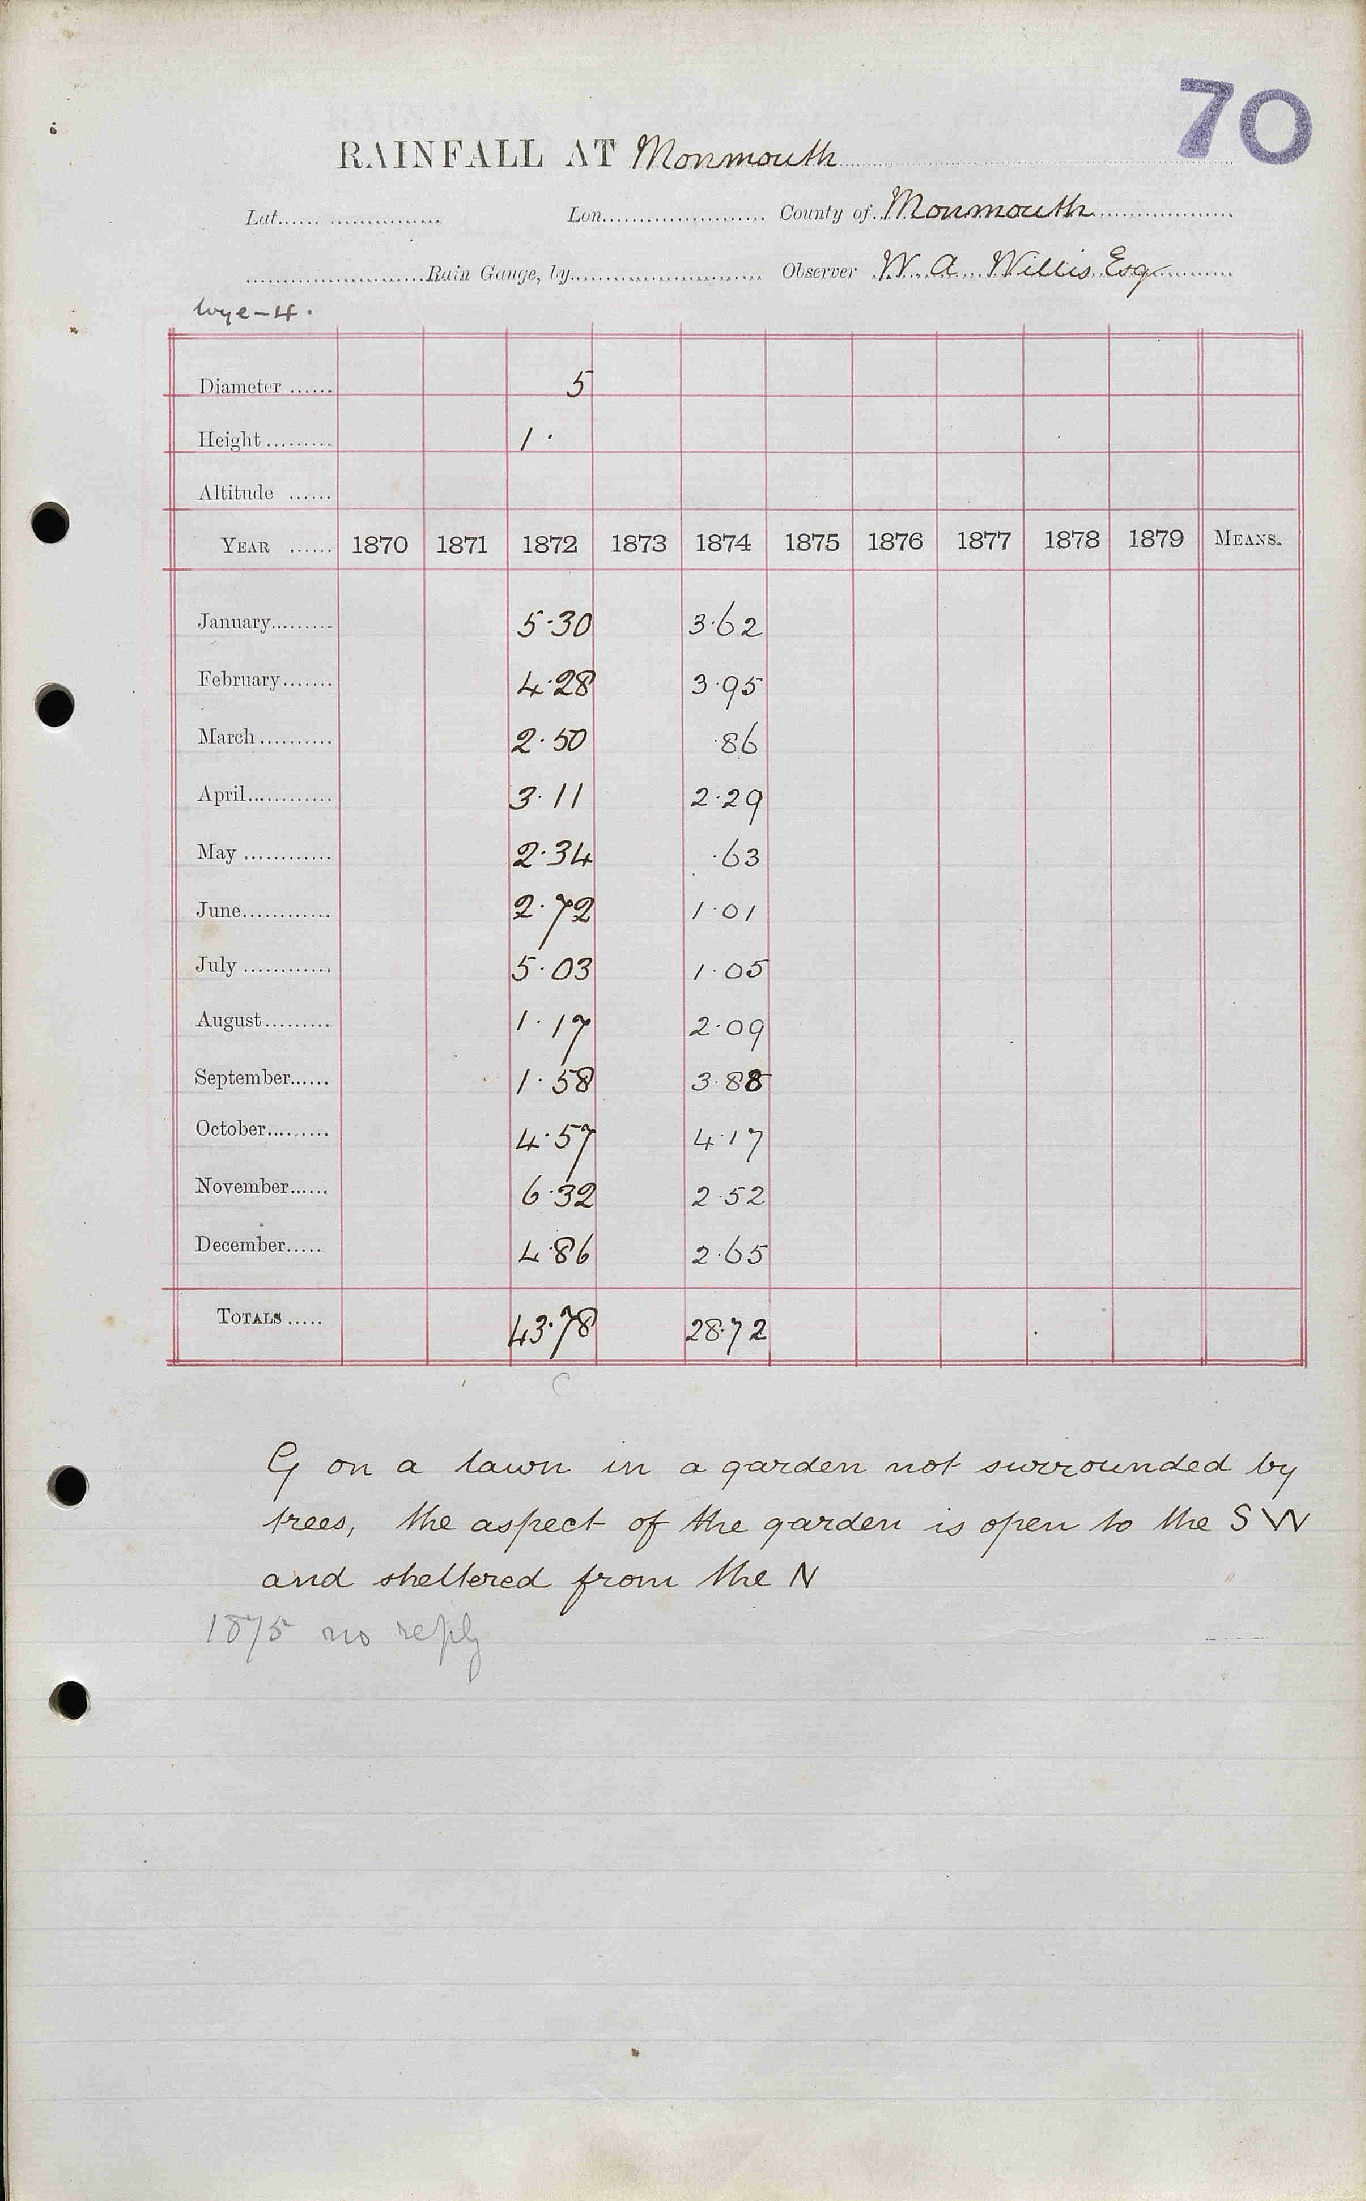 70
RAINFALL AT Monmouth
Lat. Lon. County of Monmouth
Rain Gauge, by Observer W. A. Willis Esq
Wye-4.
Diameter 5
Height 1 ·
Altitude
YEAR 1870 1871 1872 1873 1874 1875 1876 1877 1878 1879 MEANS.
January 5·30 3·62
February 4·28 3·95
March 2·50 ·86
April 3·11 2·29
May 2·34 ·63
June 2·72 1·01
July 5·03 1·05
August 1·17 2·09
September 1·58 3·88
October 4·57 4·17
November 6·32 2·52
December 4·86 2·65
TOTALS 43·78 28·72
C
G on a lawn in a garden not surrounded by
trees, the aspect of the garden is open to the SW
and sheltered from the N
1875 no reply